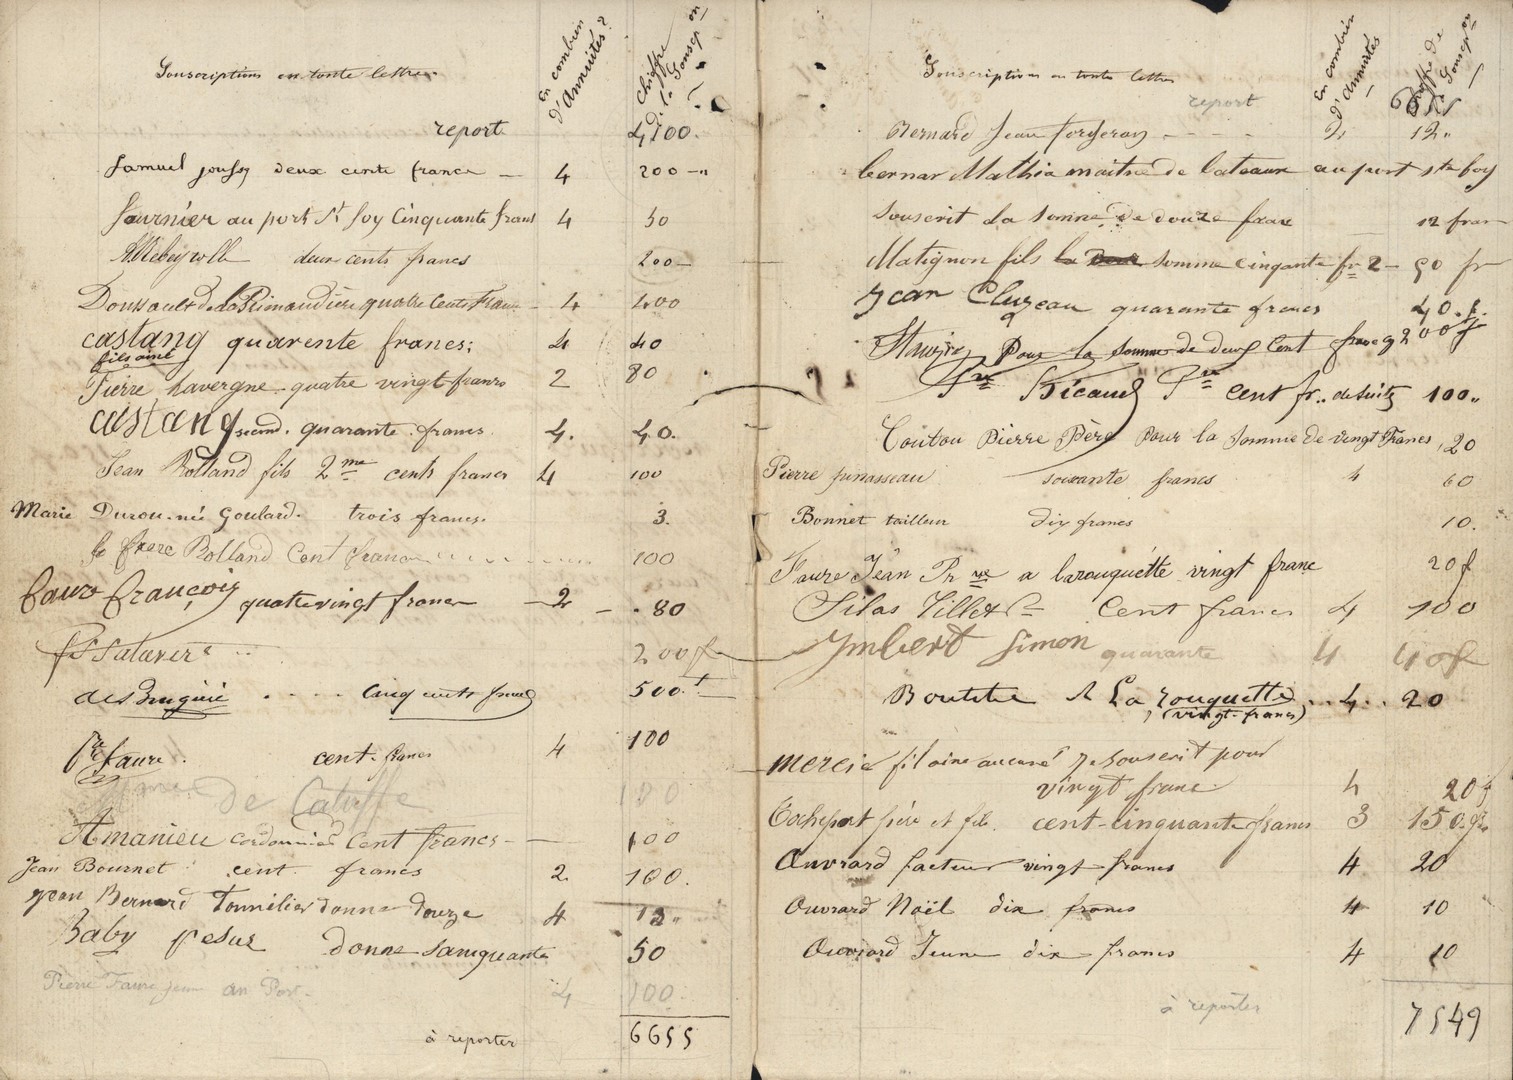 Souscriptions en toute lettre
En combien d'Annuités?
chiffre de la Souscp on
report 4100.
Samuel deux cents francs — 4 200 —"
fournier au port St foy Cinquante francs 4 50
deux cents francs 200 —
Doussault de la Rimaudière quatre Cents Francs — 4 400
castang quarente francs; 4 40
fils ainé
Pierre Lavergne quatre vingt francs 2 80
castang second. quarante francs 4. 40.
Jean Rolland fils 2 me cents francs 4 100
Marie Durou née Goulard. trois francs. 3.
le frere Rolland Cent francs 100
faure françois quatre vingt francs — 2 — . 80
200 f
cinq cents francs 500. f
Pre faure. cent francs 4 100
Mme de 100
Amanieu cordonnier Cent francs — 100
Jean Bournet cent francs 2 100.
jean Bernard Tonnelier donne douze 4 12"
Baby donne sanquante 50
Pierre Faure jeune au Port. 4 100.
à reporter 6655
Souscriptions en toute lettre
En combien d'annuités
chiffre de la Souscp on
report 6655
Bernard Jean forgeron - - - - 12"
bernar Mathia maitre de bateaux au port ste foy
souscrit la somme de douze franc 12 fran
Matignon fils somme cinqante fr 2 — 50 fr
Jean Cluzeau quarante francs 40. f.
Pour la somme de deux Cent francs 200 f
Pre Ricaud cent fr.. de suite 100"
Coutou Pierre Père Pour la somme de vingt Francs 20
Pierre soixante francs 4 60
Bonnet tailleur dix francs 10.
Faure Jean a larouquétte vingt franc 20 f
Silas Cent francs 4 100
Ymbert Simon quarante 4 40 f
A La rouquette . . 4 . . 20
(vingt francs)
mercie fil aine je souscrit pour
vingt franc. 4 20 f
Rochefort père et fils. cent cinquante francs 3 150. frs
Ouvrard facteur vingt francs 4 20
Ouvrard Noël dix francs 4 10
Ouvrard Jeune dix francs 4 10
à reporter 7549